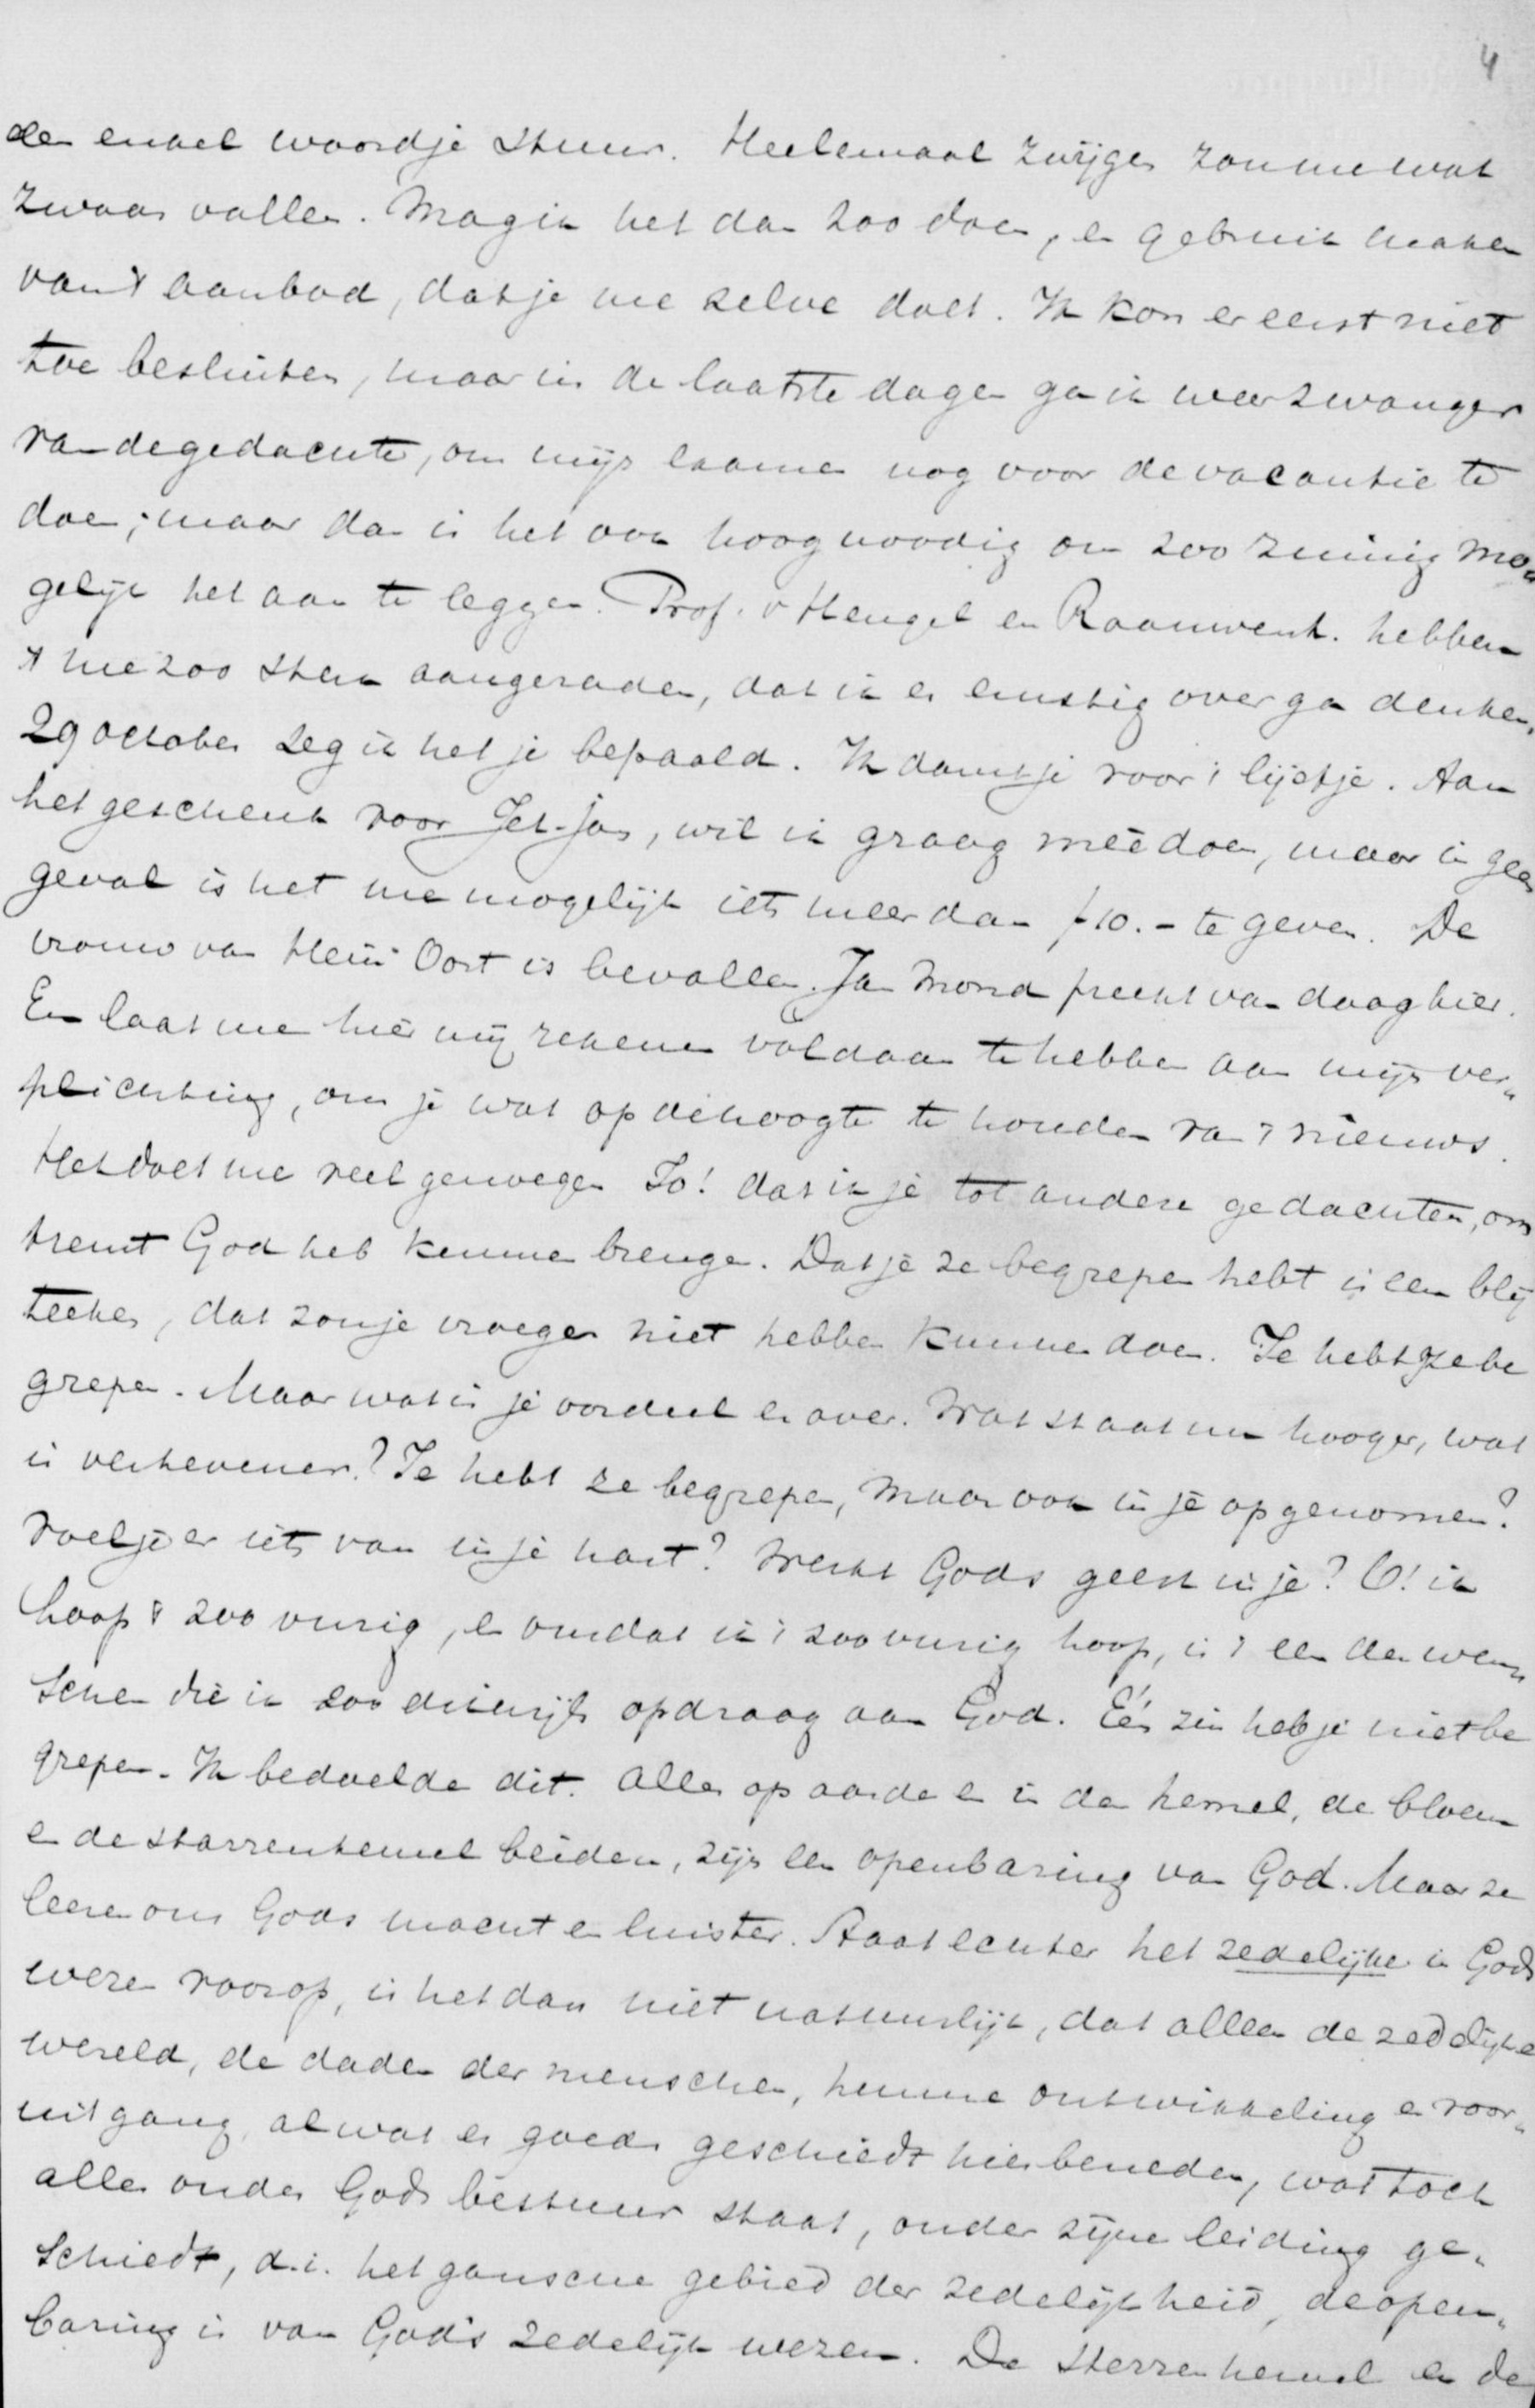 4
een enkel woordje stuur. Heelemaal zwijgen zou me wat
zwaar vallen. Mag ik het dan zoo doen, en gebruik maken
van 't aanbod, dat je me zelve doet. Ik kon er eerst niet
toe besluiten, maar in de laatste dagen ga ik weer zwanger
van de gedachte, om mijn examen nog voor de vacantie te
doen; maar dan is het ook hoog noodig om zoo zuinig mo„
gelijk het aan te leggen. Prof. v Hengel en Rauwenh. hebben
't me zoo sterk aangeraden, dat ik er ernstig over ga denken,
29 october zeg ik het je bepaald. Ik dank je voor 't lijstje. Aan
het geschenk voor Jet-Jan, wil ik graag méédoen, maar in geen
geval is het me mogelijk iets meer dan f 10.- te geven. De
vrouw van Hein Oort is bevallen. Jan Mond preekt van daag hier.
En laat me hier mij rekenen voldaan te hebben aan mijn ver„
plichting, om je wat op de hoogte te houden van 't nieuws.
Het doet me veel genoegen Jo! dat ik je tot andere gedachten, om
trent God heb kunnen brengen. Dat je ze begrepen hebt is een blij
teeken, dat zou je vroeger niet hebben kunnen doen. Je hebt ze be
grepen. Maar wat is je oordeel er over. Wat staat nu hooger, wat
is verhevener? Je hebt ze begrepen, maar ook in je opgenomen?
Voel je er iets van in je hart? Werkt Gods geest in je? O! ik
hoop 't zoo vurig, en omdat ik 't zoo vurig hoop, is 't een der wen„
schen die ik zoo dikwijls opdraag aan God. Één zin heb je niet be
grepen. Ik bedoelde dit. Alles op aarde en in den hemel, de bloem
en de starrenhemel beiden, zijn een openbaring van God. Maar ze
leeren ons Gods macht en luister. Staat echter het zedelijke in Gods
wezen voorop, is het dan niet natuurlijk, dat alleen de zedelijke
wereld, de daden der menschen, hunne ontwikkeling en voor„
uitgang, al wat er goeds geschiedt hier beneden, wat toch
alles onder Gods bestuur staat, onder zijne leiding ge„
schiedt, d.i. het gansche gebied der zedelijkheid, de open„
baring is van God's zedelijk wezen. De sterrenhemel en de